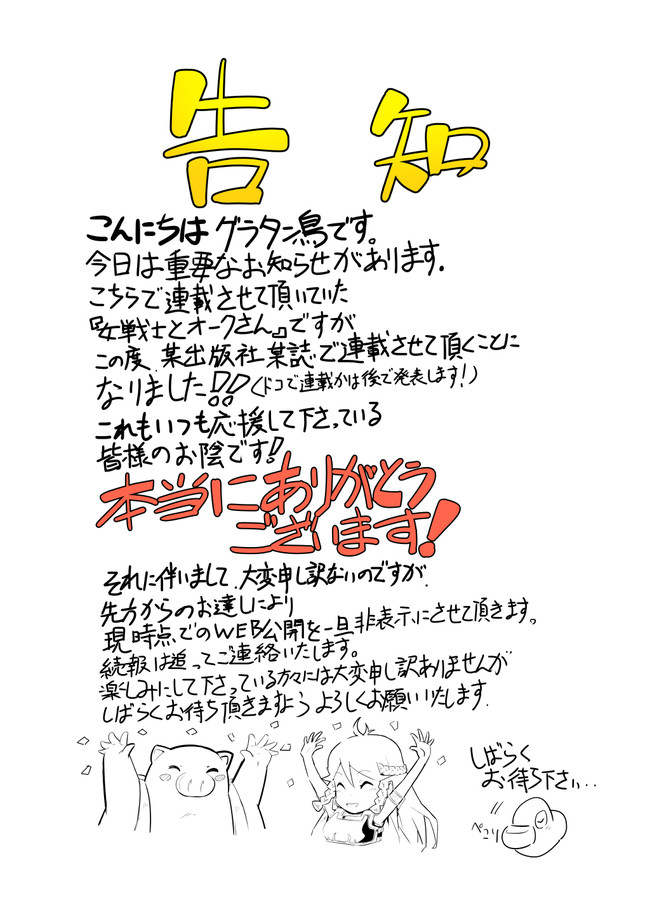 告知
こんにちは グラタン鳥です。
今日は重要なお知らせがあります.
こちらで連載させて頂いていた
『女戦士とオークさん』ですが
この度、某出版社某誌で連載させて頂くことに
なりました!!(ドコで連載かは後で発表します!)
これもいつも応援して下さっている
皆様のお陰です!
本当にありがとう
ございます!
それに伴いまして、大変申し訳ないのですが、
先方からのお達しにより
現時点でのWEB公開を一旦非表示にさせて頂きます。
続報は追ってご連絡いたします。
楽しみにして下さっている方々には大変申し訳ありませんが
しばらくお待ち頂きますよう よろしくお願いいたします.
しばらく
お待ち下さい..
ペコリ